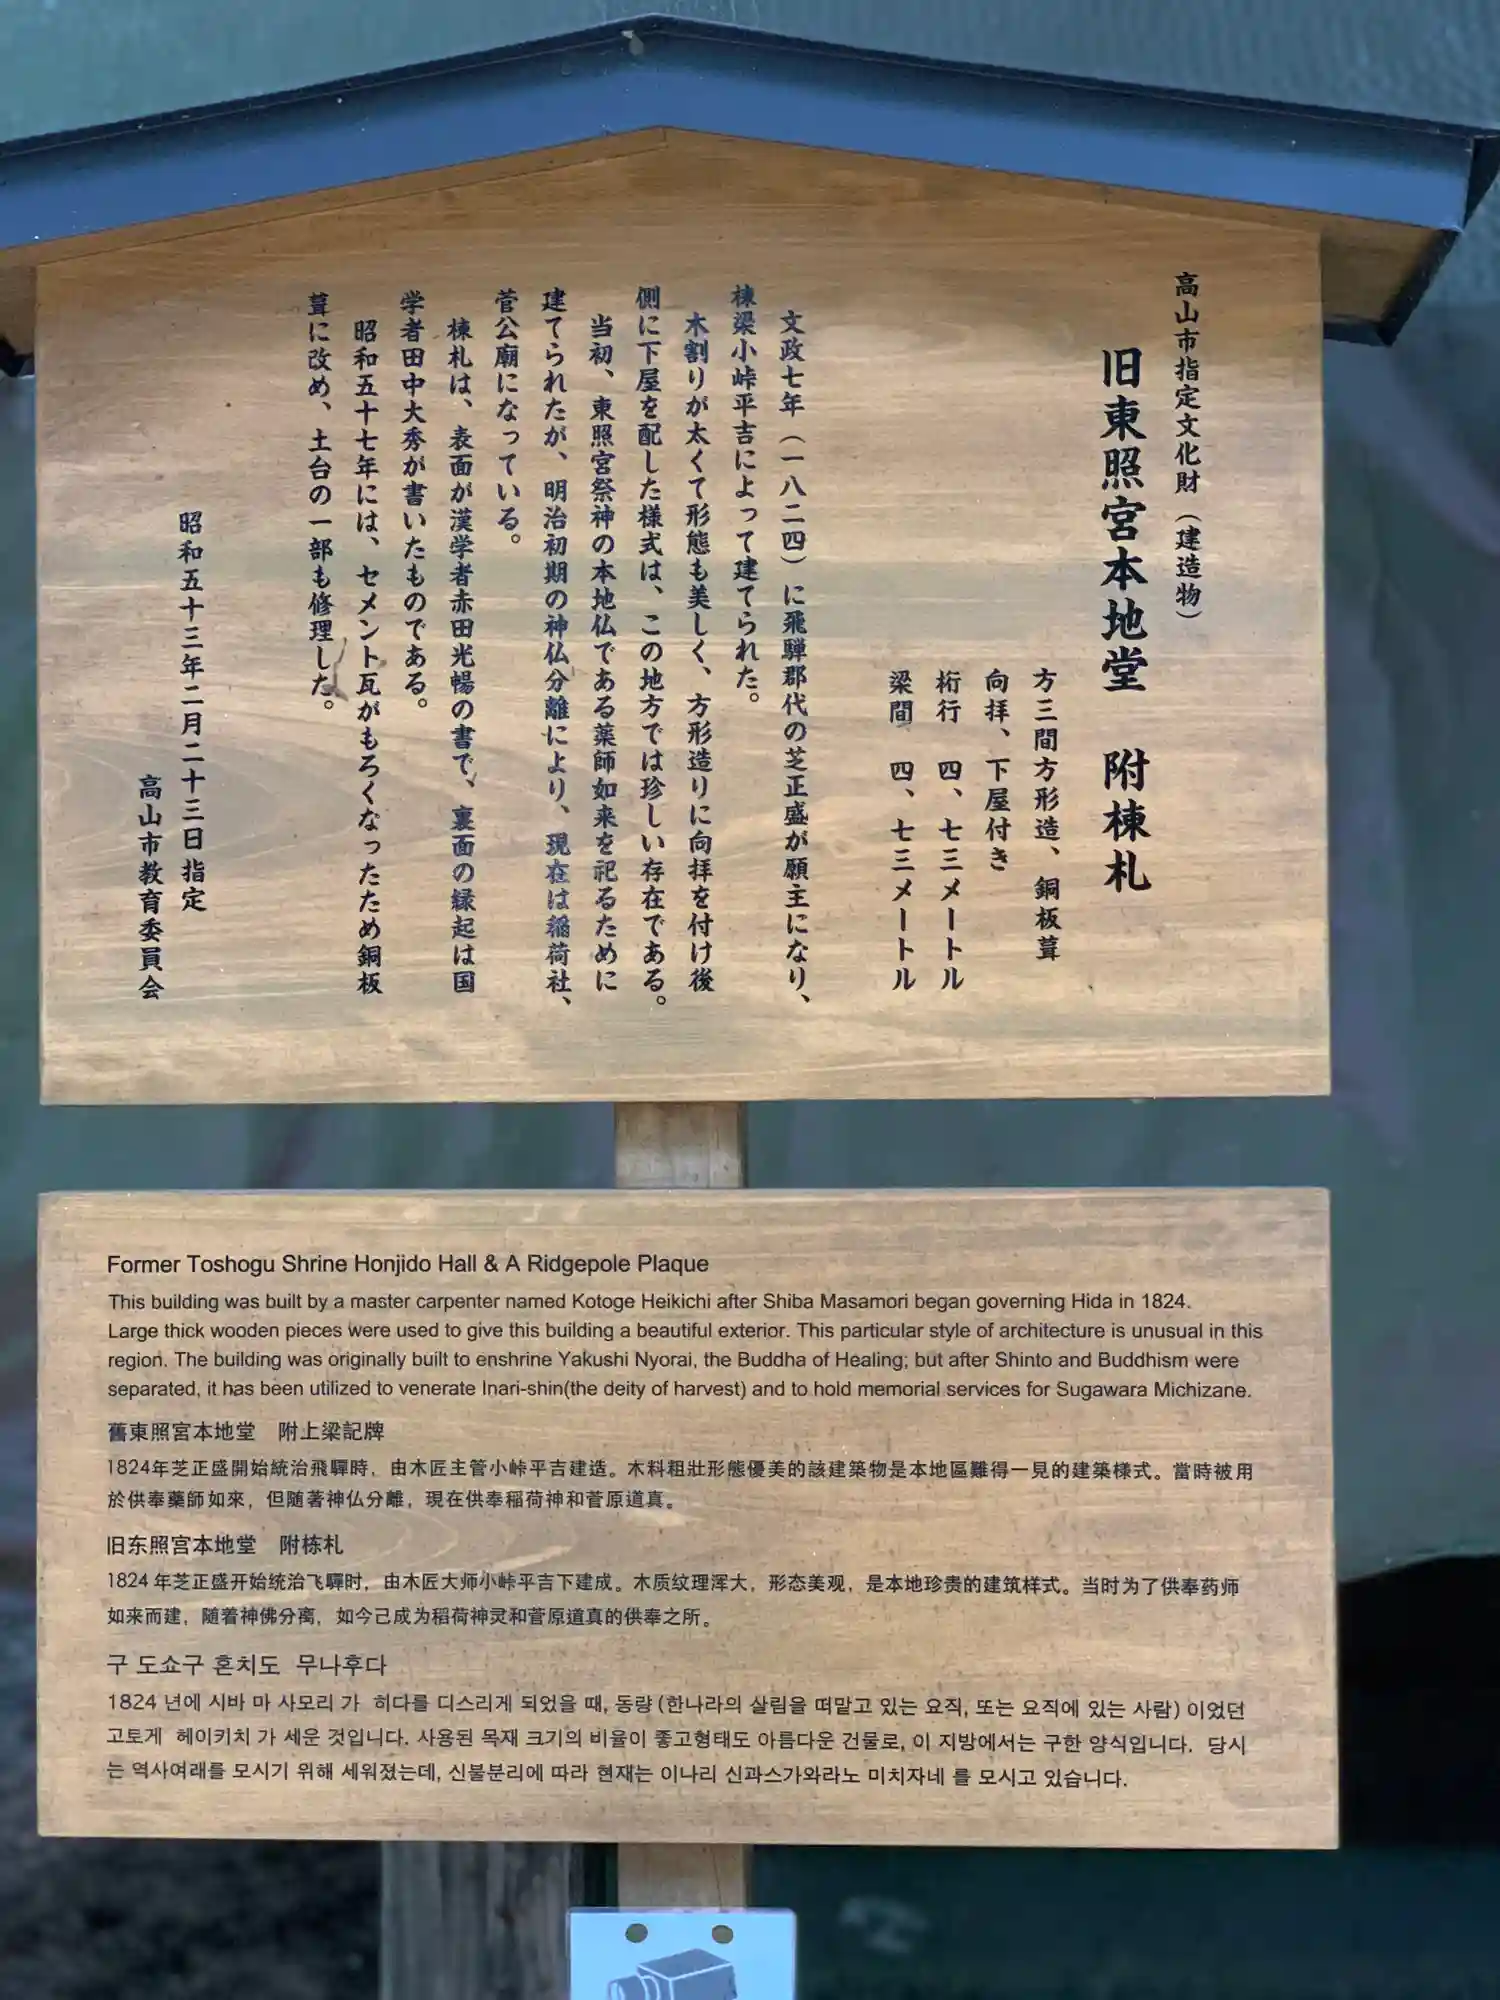 高山市指定文化財（建造物）
旧東照宮本地堂　附棟札
方三間方形造、銅板葺
向拝、下屋付き
桁行　四、七三メートル
梁間　四、七三メートル
文政七年（一八二四）に飛騨郡代の芝正盛が願主になり、
棟梁小峠平吉によって建てられた。
木割りが太くて形態も美しく、方形造りに向拝を付け後
側に下屋を配した様式は、この地方では珍しい存在である。
当初、東照宮祭神の本地仏である薬師如来を祀るために
建てられたが、明治初期の神仏分離により、現在は稲荷社、
菅公廟になっている。
棟札は、表面が漢学者赤田光暢の書で、裏面の縁起は国
学者田中大秀が書いたものである。
昭和五十七年には、セメント瓦がもろくなったため銅板
葺に改め、土台の一部も修理した。
昭和五十三年二月二十三日指定
高山市教育委員会
Former Toshogu Shrine Honjido Hall & A Ridgepole Plaque
This building was built by a master carpenter named Kotoge Heikichi after Shiba Masamori began governing Hida in 1824.
Large thick wooden pieces were used to give this building a beautiful exterior. This particular style of architecture is unusual in this
region. The building was originally built to enshrine Yakushi Nyorai, the Buddha of Healing; but after Shinto and Buddhism were
separated, it has been utilized to venerate Inari-shin(the deity of harvest) and to hold memorial services for Sugawara Michizane.
舊東照宮本地堂　附上梁記牌
1824年芝正盛開始統治飛驒時，由木匠主管小峠平吉建造。木料粗壯形態優美的該建築物是本地區難得一見的建築樣式。當時被用
於供奉藥師如來，但随著神仏分離，現在供奉稲荷神和菅原道真。
旧东照宫本地堂　附栋札
1824 年芝正盛开始统治飞驒时，由木匠大师小峠平吉下建成。木质纹理浑大，形态美观，是本地珍贵的建筑样式。当时为了供奉药师
如来而建，随着神佛分离，如今己成为稻荷神灵和菅原道真的供奉之所。
구 도쇼구 혼치도 무나후다
1824 년에 시바 마 사모리 가 히다를 디스리게 되었을 때, 동량 (한나라의 살림을 떠맡고 있는 요직, 또는 요직에 있는 사람) 이었던
고토게 헤이키치 가 세운 것입니다. 사용된 목재 크기의 비율이 좋고형태도 아름다운 건물로, 이 지방에서는 구한 양식입니다. 당시
는 역사여래를 모시기 위해 세워졌는데, 신불분리에 따라 현재는 이나리 신과스가와라노 미치자네 를 모시고 있습니다.